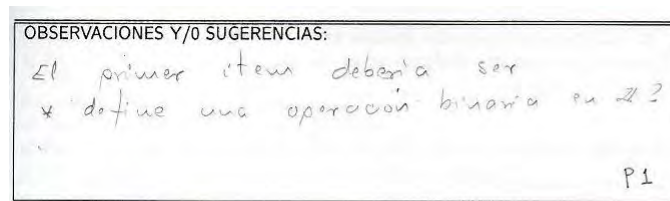 OBSERVACIONES Y/O SUGERENCIAS:
El primer item debería ser
* define una operación binaria en ℤ?
P1